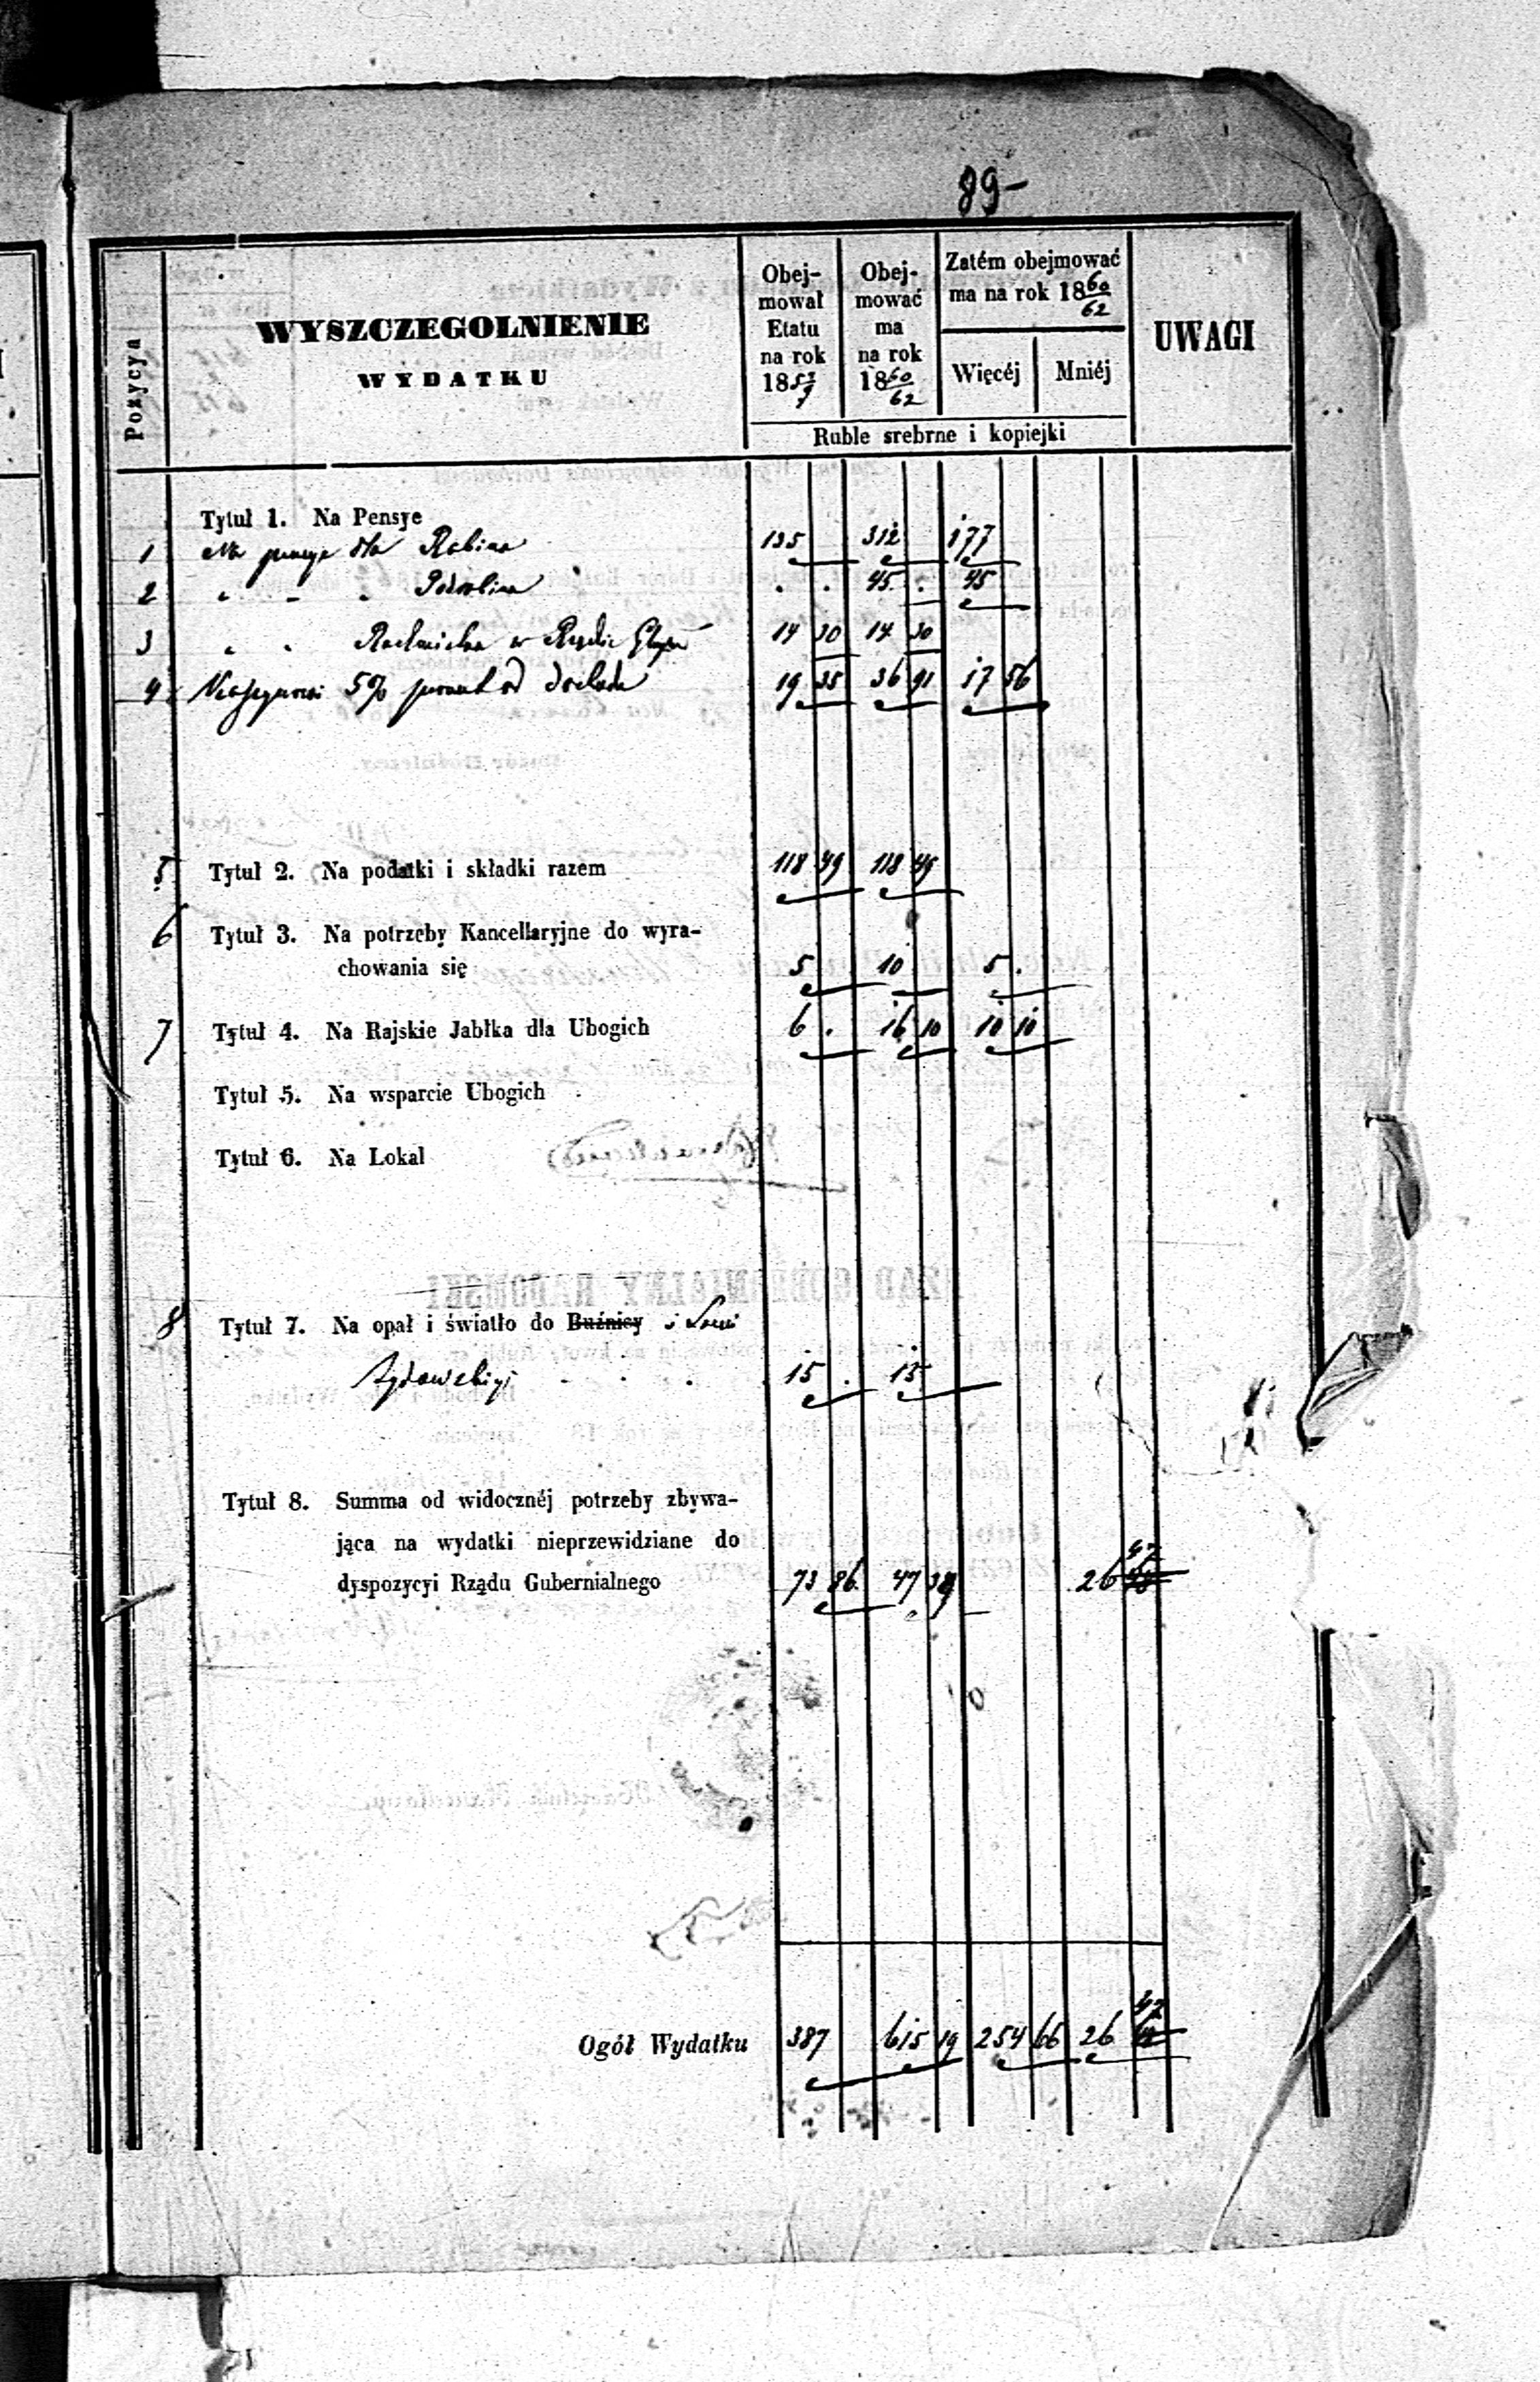 89-
Pozycya
WYSZCZEGOLNIENIE
WYDATKU
Obej-
mował
Etatu
na rok
18 57/9
Obej-
mować
ma
na rok
18 60/62
Zatém obejmować
ma na rok 18 60/62
Więcéj
Mniéj
UWAGI
Ruble srebrne i kopiejki
Tytuł 1. Na Pensye
1 Na pensye dla Rabina 135 312 177
2 " - " . . 45 . 45
3 " " w 14 30 14 30
4 5% od 19 35 36 91 17 56
5 Tytuł 2. Na podatki i składki razem 118 49 118 49
6 Tytuł 3. Na potrzeby Kancellaryjne do wyra-
chowania się 5 10 5 .
7 Tytuł 4. Na Rajskie Jabłka dla Ubogich 6 . 16 10 10 10
Tytuł 5. Na wsparcie Ubogich
Tytuł 6. Na Lokal
8 Tytuł 7. Na opał i światło do Buźnicy i
15 . 15
Tytuł 8. Summa od widocznéj potrzeby zbywa-
jąca na wydatki nieprzewidziane do
dyspozycyi Rządu Gubernialnego 73 86 47 39 26 47
Ogół Wydatku 387 615 19 254 66 26 47